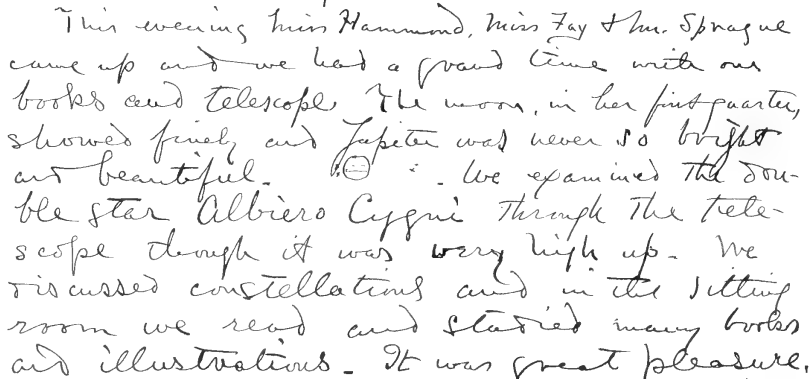 This evening Miss Hammond, Miss Fay & Mr. Sprague
came up and we had a grand time with our
books and telescope. The moon, in her first quarter,
showed finely and Jupiter was never so bright
and beautiful. We examined the dou-
ble star Albiero Cygni through the tele-
scope though it was very high up. We
discussed constellations and in the sitting
room we read and studied many books
and illustrations. It was great pleasure.